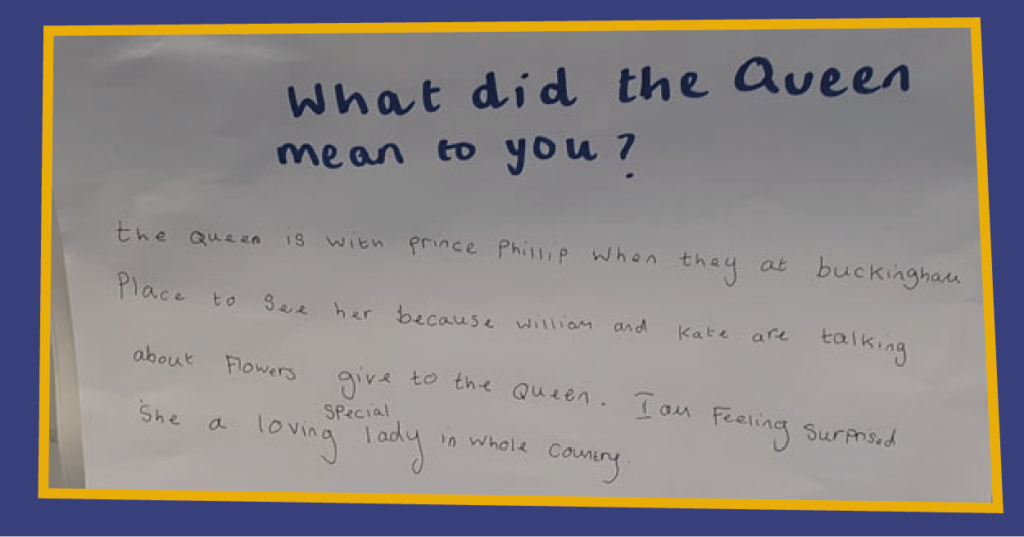 What did the Queen
mean to you?
the Queen is with prince Phillip when they at buckingham
Place to See her because william and Kate are talking
about Flowers give to the Queen. I am Feeling Surprised
She a loving special lady in whole country.